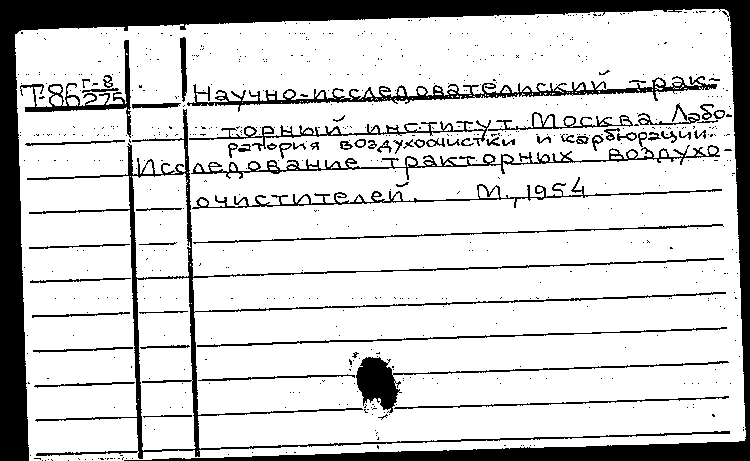 Т-86 Г-8/275 Научно-исследовательский трак-
торный институт. Москва. Лабо-
ратория воздухоочистки и карбюрации.
Исследование тракторных воздухо-
очистителей. М., 1954